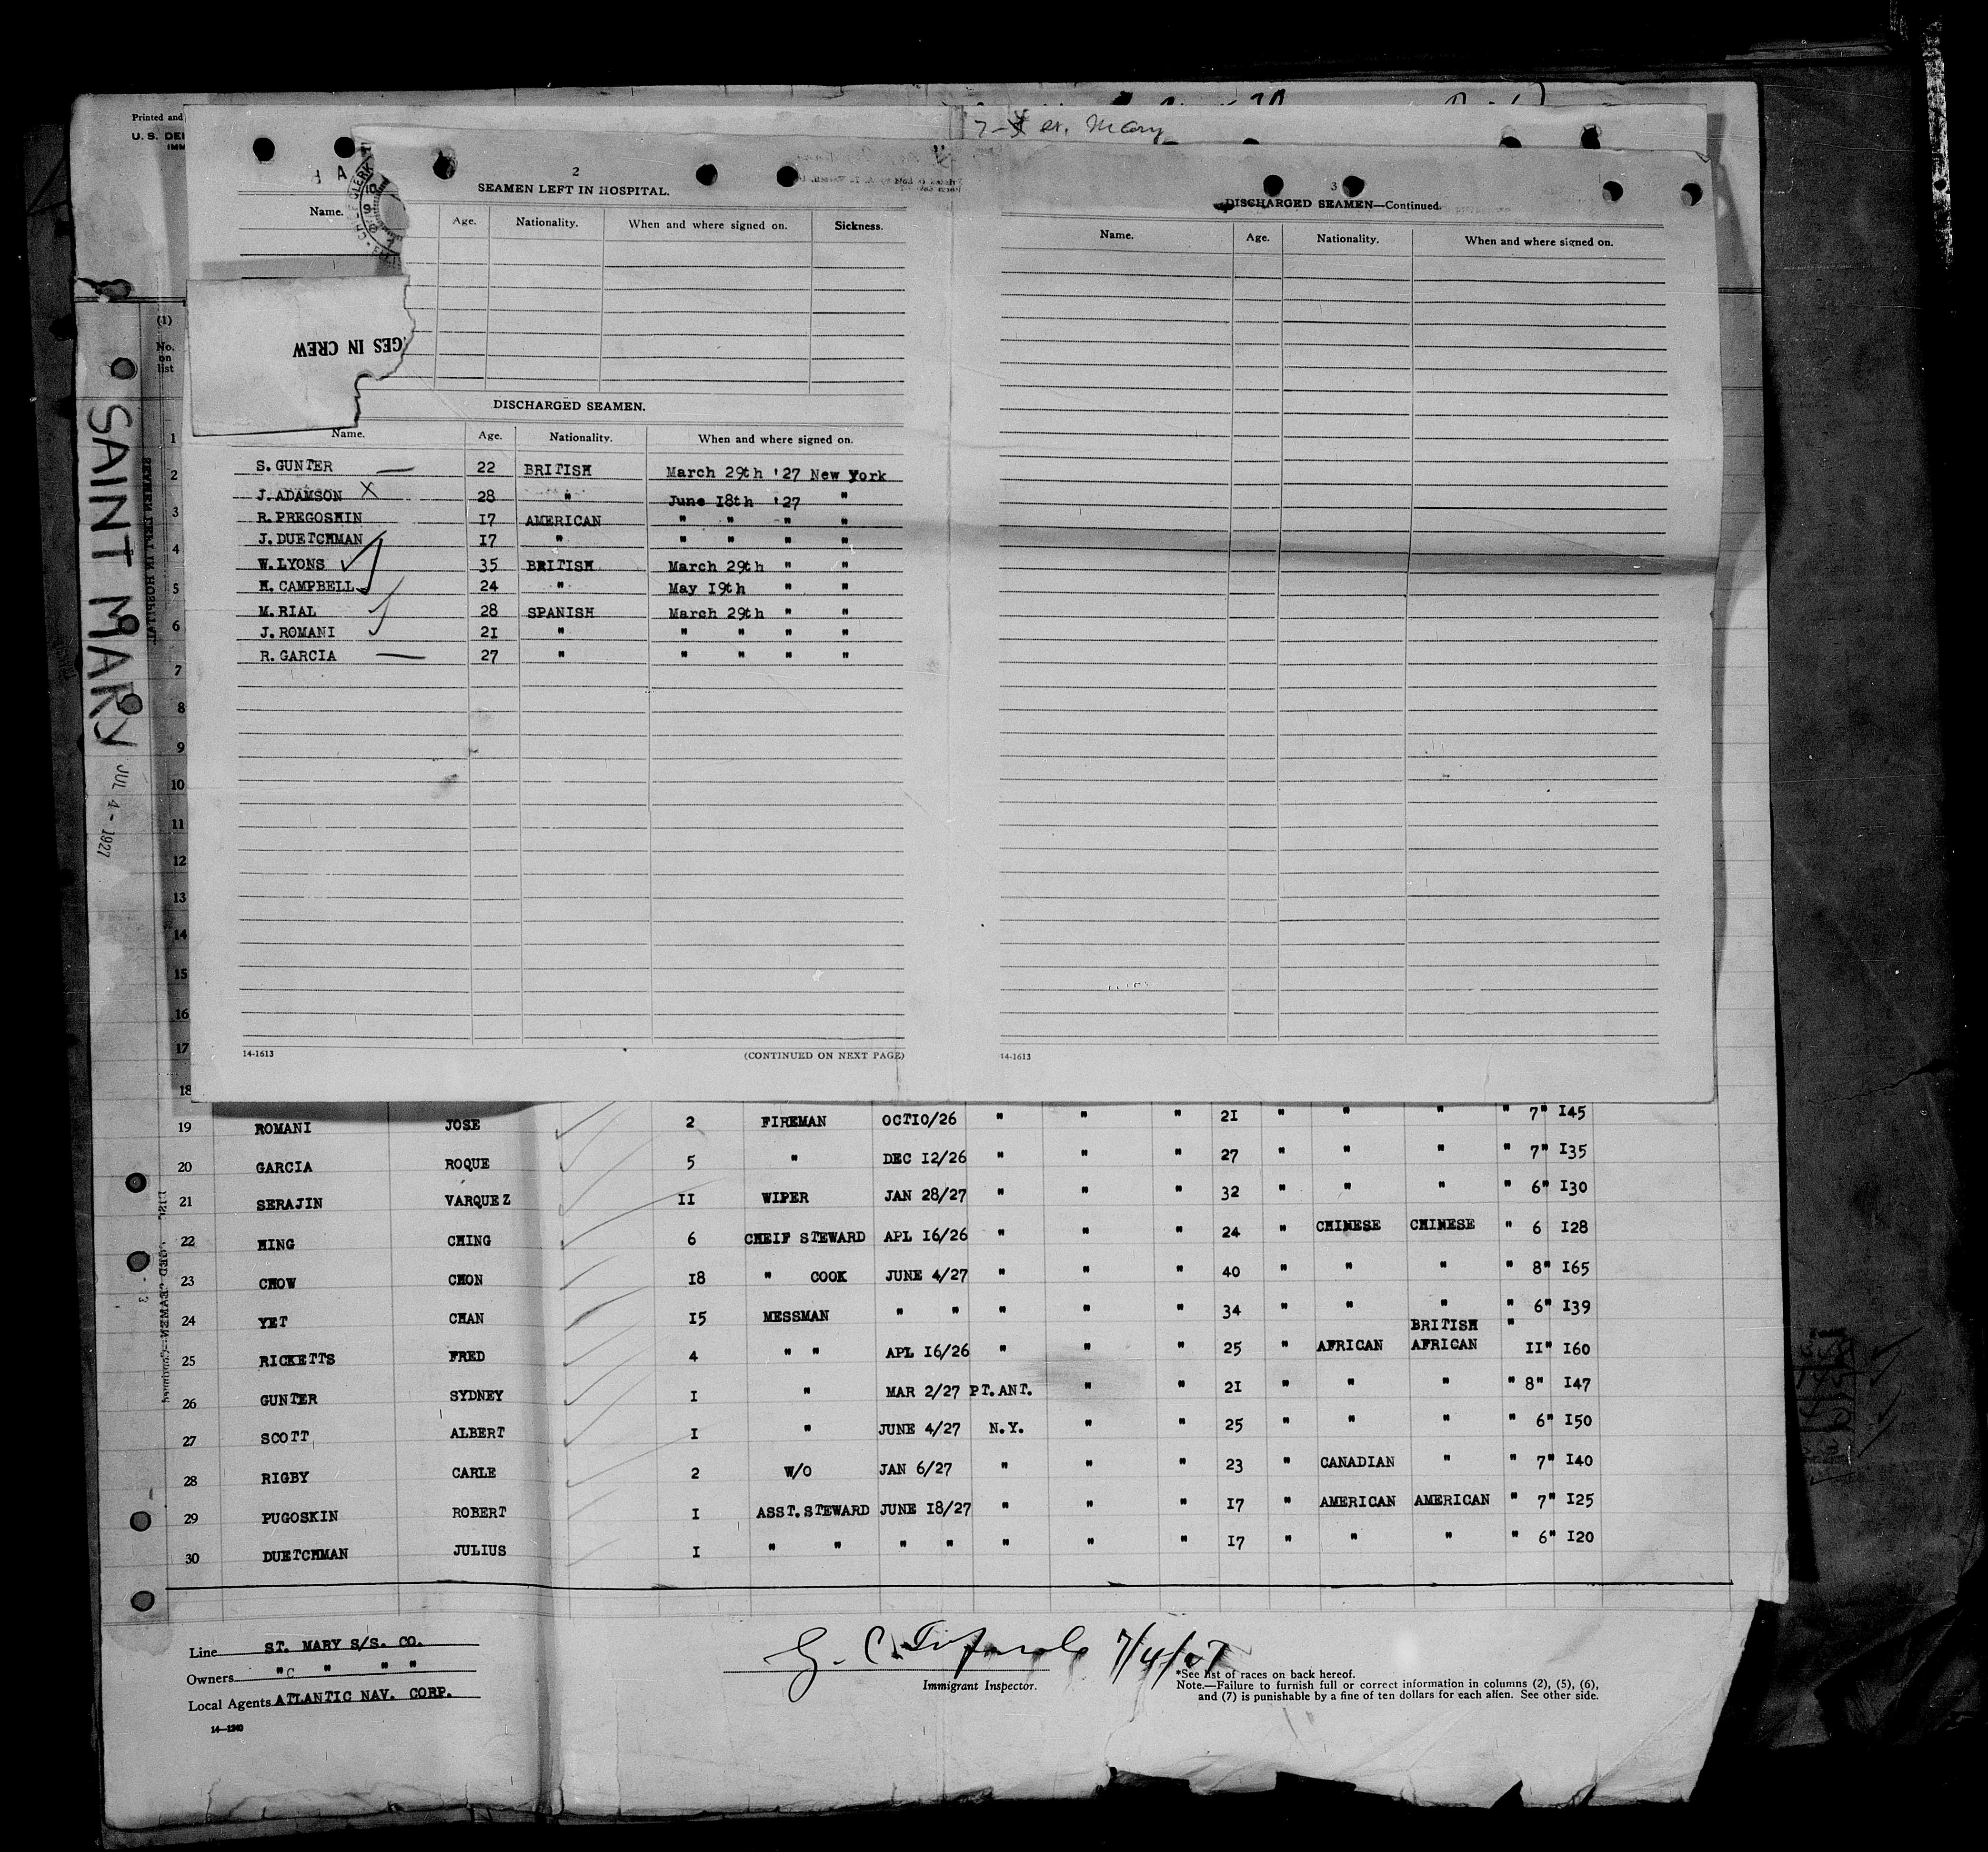 Printed and
U. S. DE
IMM
7-4 St. Mary
2
SEAMEN LEFT IN HOSPITAL.
Name. Age. Nationality. When and where signed on. Sickness.
GES IN CREW
DISCHARGED SEAMEN.
Name. Age. Nationality. When and where signed on.
S. GUNTER — 22 BRITISH March 29th '27 New York
J. ADAMSON X 28 " June 18th '27 "
R. PREGOSHIN 17 AMERICAN " " " "
J. DUETCHMAN 17 " " " " "
W. LYONS 35 BRITISH March 29th " "
H. CAMPBELL 24 " May 19th " "
M. RIAL 28 SPANISH March 29th " "
J. ROMANI 21 " " " " "
R. GARCIA — 27 " " " " "
14-1613 (CONTINUED ON NEXT PAGE)
3
DISCHARGED SEAMEN—Continued.
Name. Age. Nationality. When and where signed on.
14-1613
SAINT MARY
JUL 4 - 1927
(1)
No.
on
list
1
2
3
4
5
6
7
8
9
10
11
12
13
14
15
16
17
18
19 ROMANI JOSE 2 FIREMAN OCT10/26 " " " 21 " " " " 7" 145
20 GARCIA ROQUE 5 " DEC 12/26 " " " 27 " " " " 7" 135
21 SERAJIN VARQUEZ 11 WIPER JAN 28/27 " " " 32 " " " " 6" 130
22 HING CHING 6 CHEIF STEWARD APL 16/26 " " " 24 " CHINESE CHINESE " 6 128
23 CHOW CHON 18 " COOK JUNE 4/27 " " " 40 " " " " 8" 165
24 YET CHAN 15 MESSMAN " " " " " 34 " " " " 6" 139
BRITISH "
25 RICKETTS FRED 4 " " APL 16/26 " " " 25 " AFRICAN AFRICAN 11" 160
26 GUNTER SYDNEY 1 " MAR 2/27 PT.ANT. " " 21 " " " " 8" 147
27 SCOTT ALBERT 1 " JUNE 4/27 N.Y. " " 25 " " " " 6" 150
28 RIGBY CARLE 2 W/O JAN 6/27 " " " 23 " CANADIAN " " 7" 140
29 PUGOSKIN ROBERT 1 ASST.STEWARD JUNE 18/27 " " " 17 " AMERICAN AMERICAN " 7" 125
30 DUETCHMAN JULIUS 1 " " " " " " " 17 " " " " 6" 120
Line ST. MARY S/S. CO.
Owners "C " " "
Local Agents ATLANTIC NAV. CORP.
14—1240
7/4/27
Immigrant Inspector.
*See list of races on back hereof.
Note.—Failure to furnish full or correct information in columns (2), (5), (6),
and (7) is punishable by a fine of ten dollars for each alien. See other side.